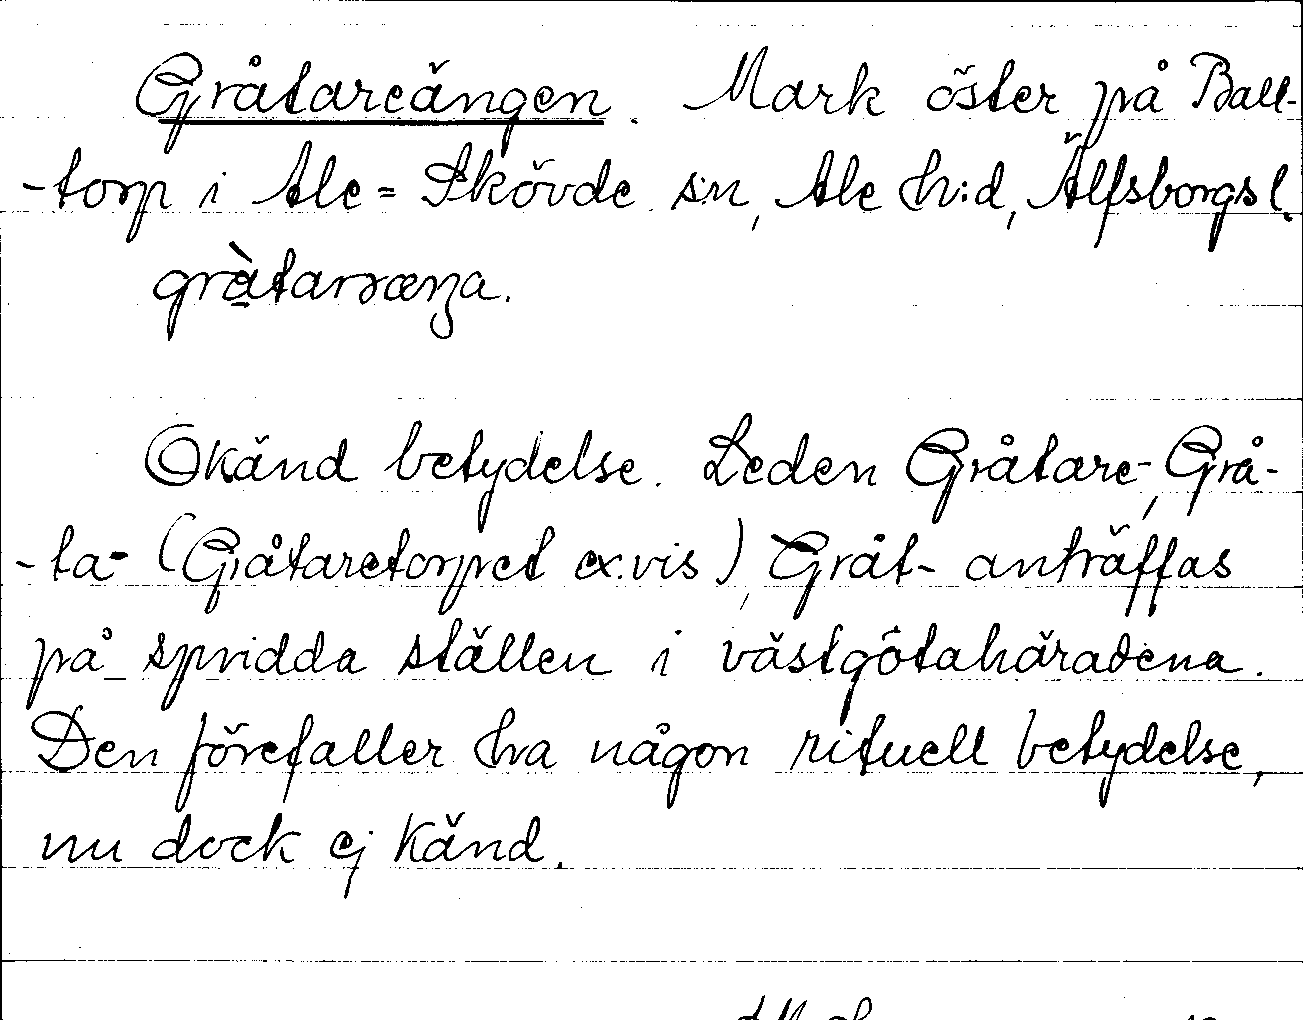 Gråtareängen. Mark öster på Ball-
-torp i Ale=Skövde s:n, Ale h:d, Älfsborgs l.
Okänd betydelse. Leden Gråtare-, Grå-
-ta- (Gråtaretorpet ex.vis), Gråt- anträffas
på spridda ställen i västgötahäradena.
Den förefaller ha någon rituell betydelse,
nu dock ej känd.